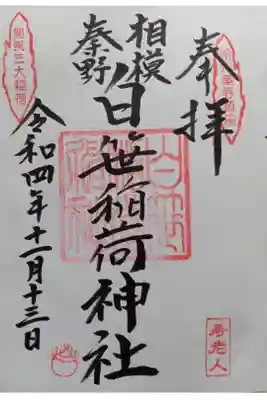 奉拝
相模
秦野
白笹稲荷神社
令和四年十一月十三日
関東三大稲荷
寿老人